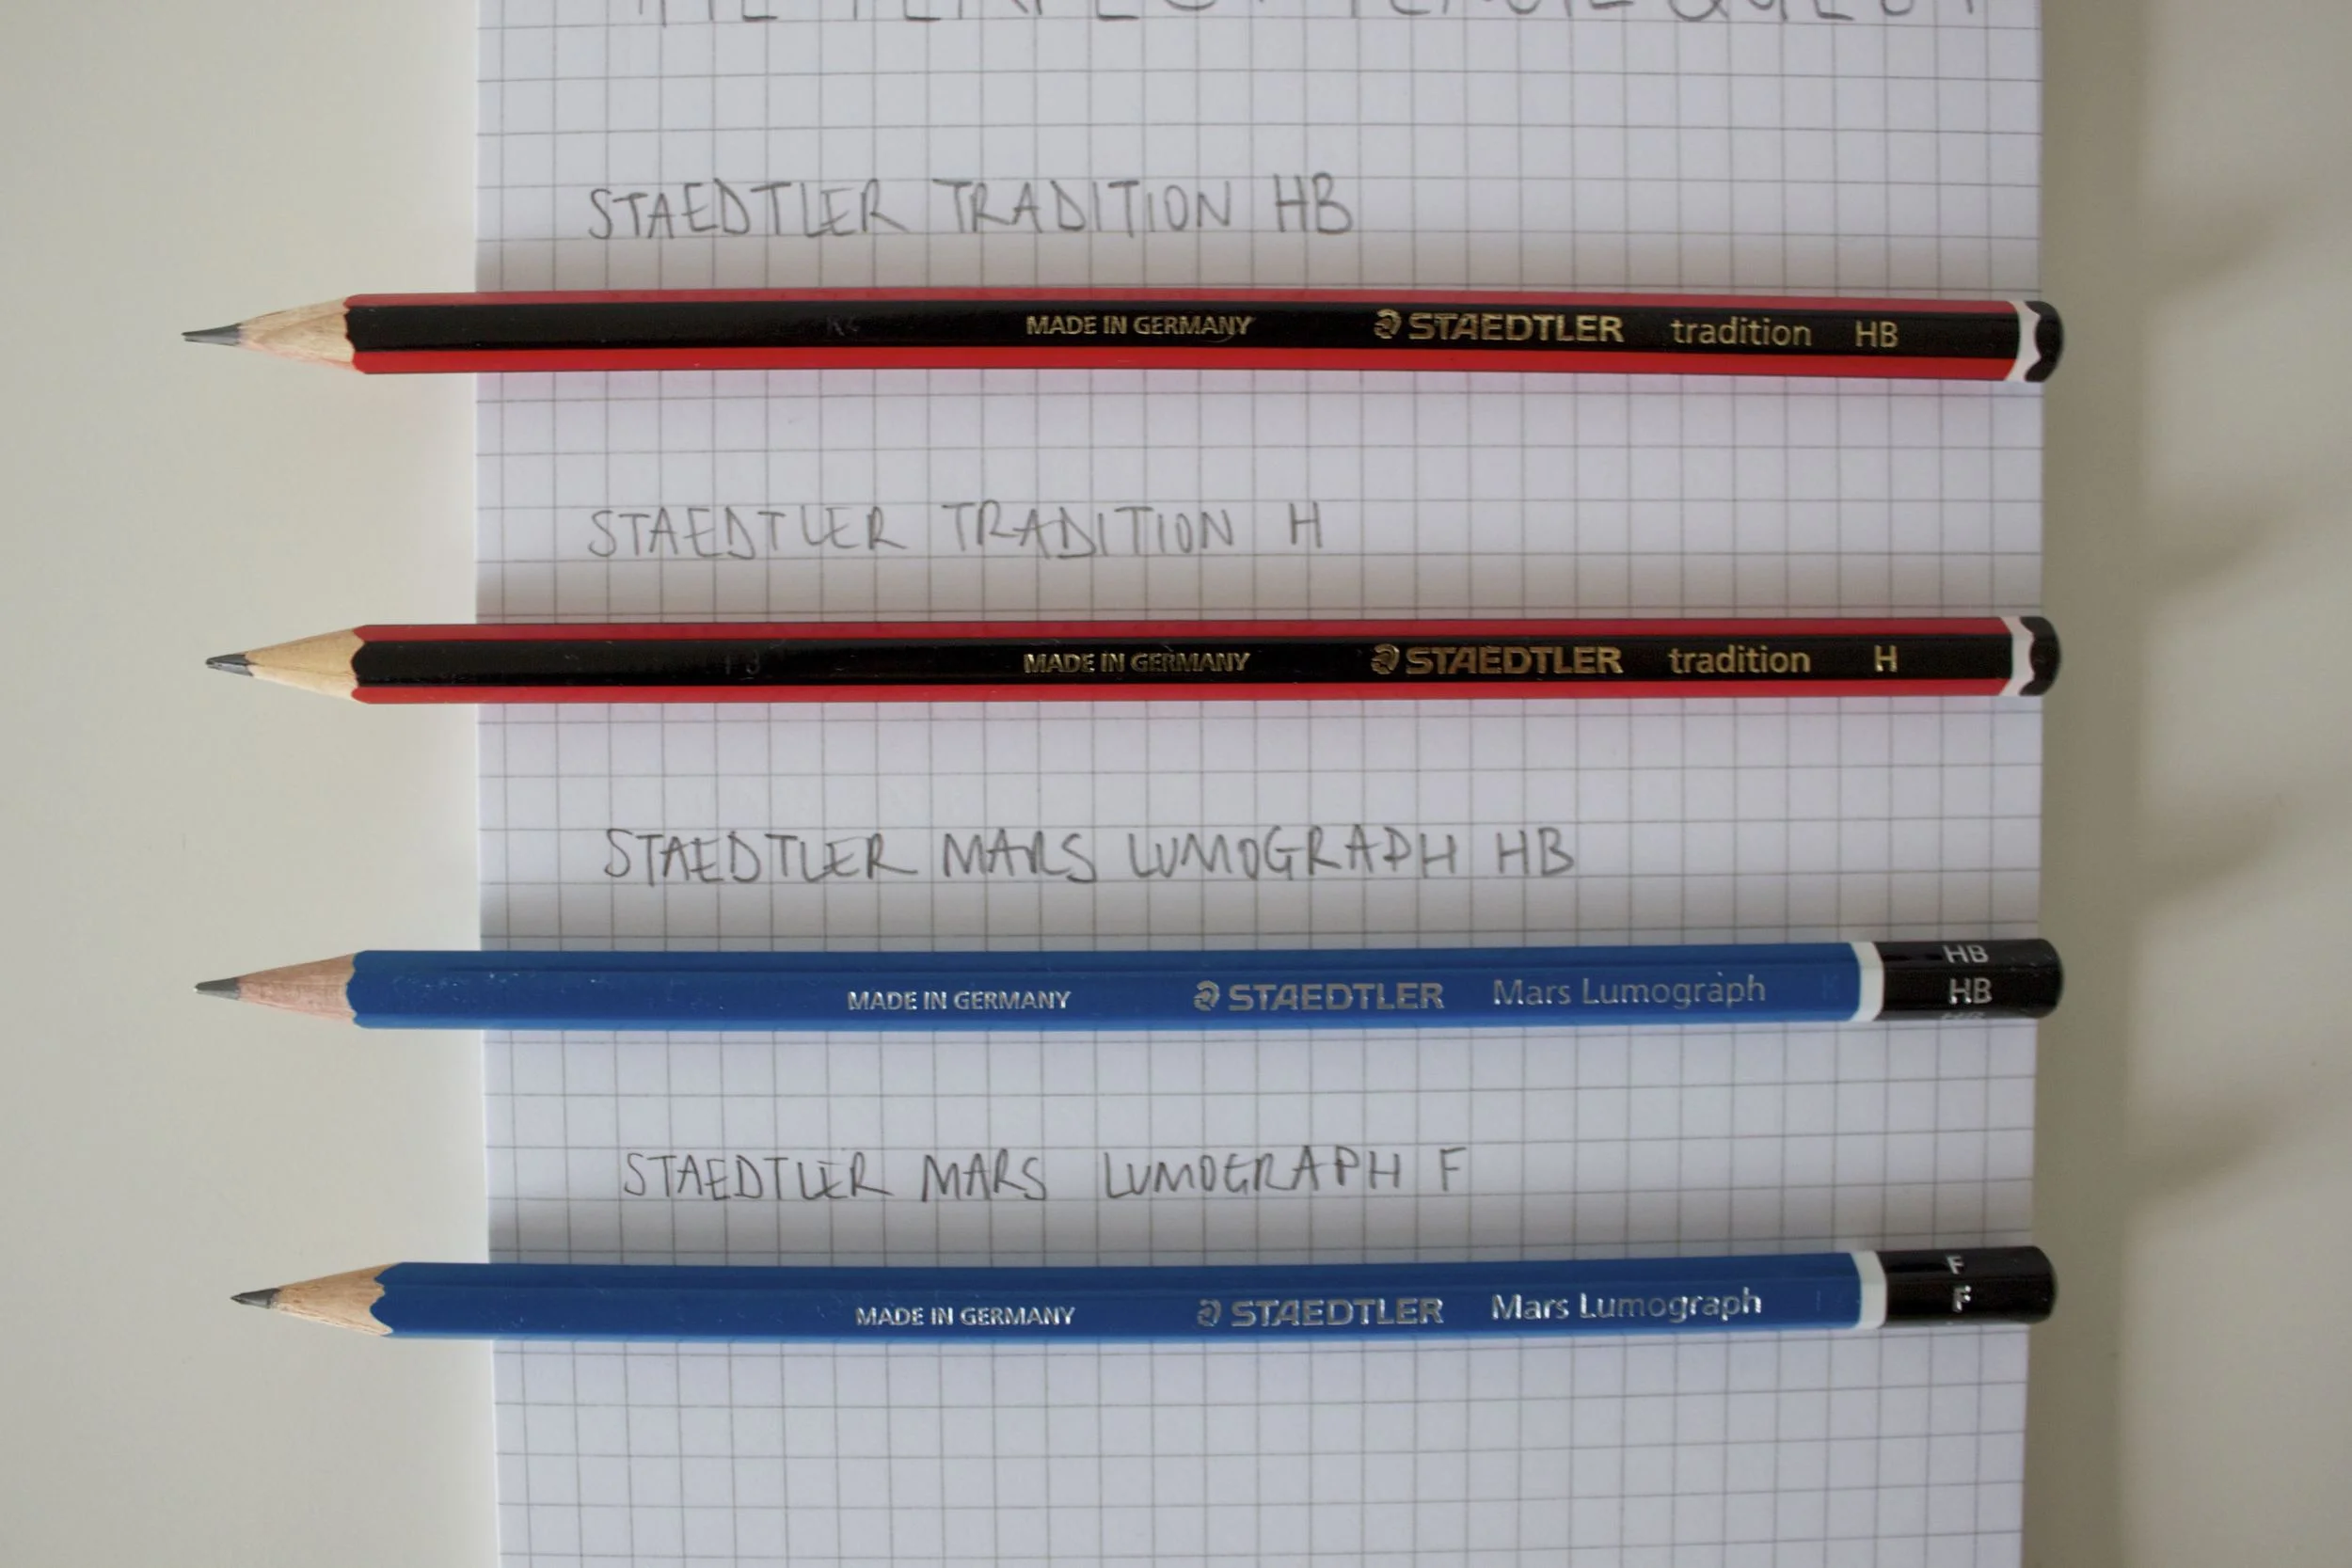 THE PERFECT PENCIL QUEST
STAEDTLER TRADITION HB
MADE IN GERMANY STAEDTLER tradition HB
STAEDTLER TRADITION H
MADE IN GERMANY STAEDTLER tradition H
STAEDTLER MARS LUMOGRAPH HB
HB
MADE IN GERMANY STAEDTLER Mars Lumograph HB
STAEDTLER MARS LUMOGRAPH F
F
MADE IN GERMANY STAEDTLER Mars Lumograph F